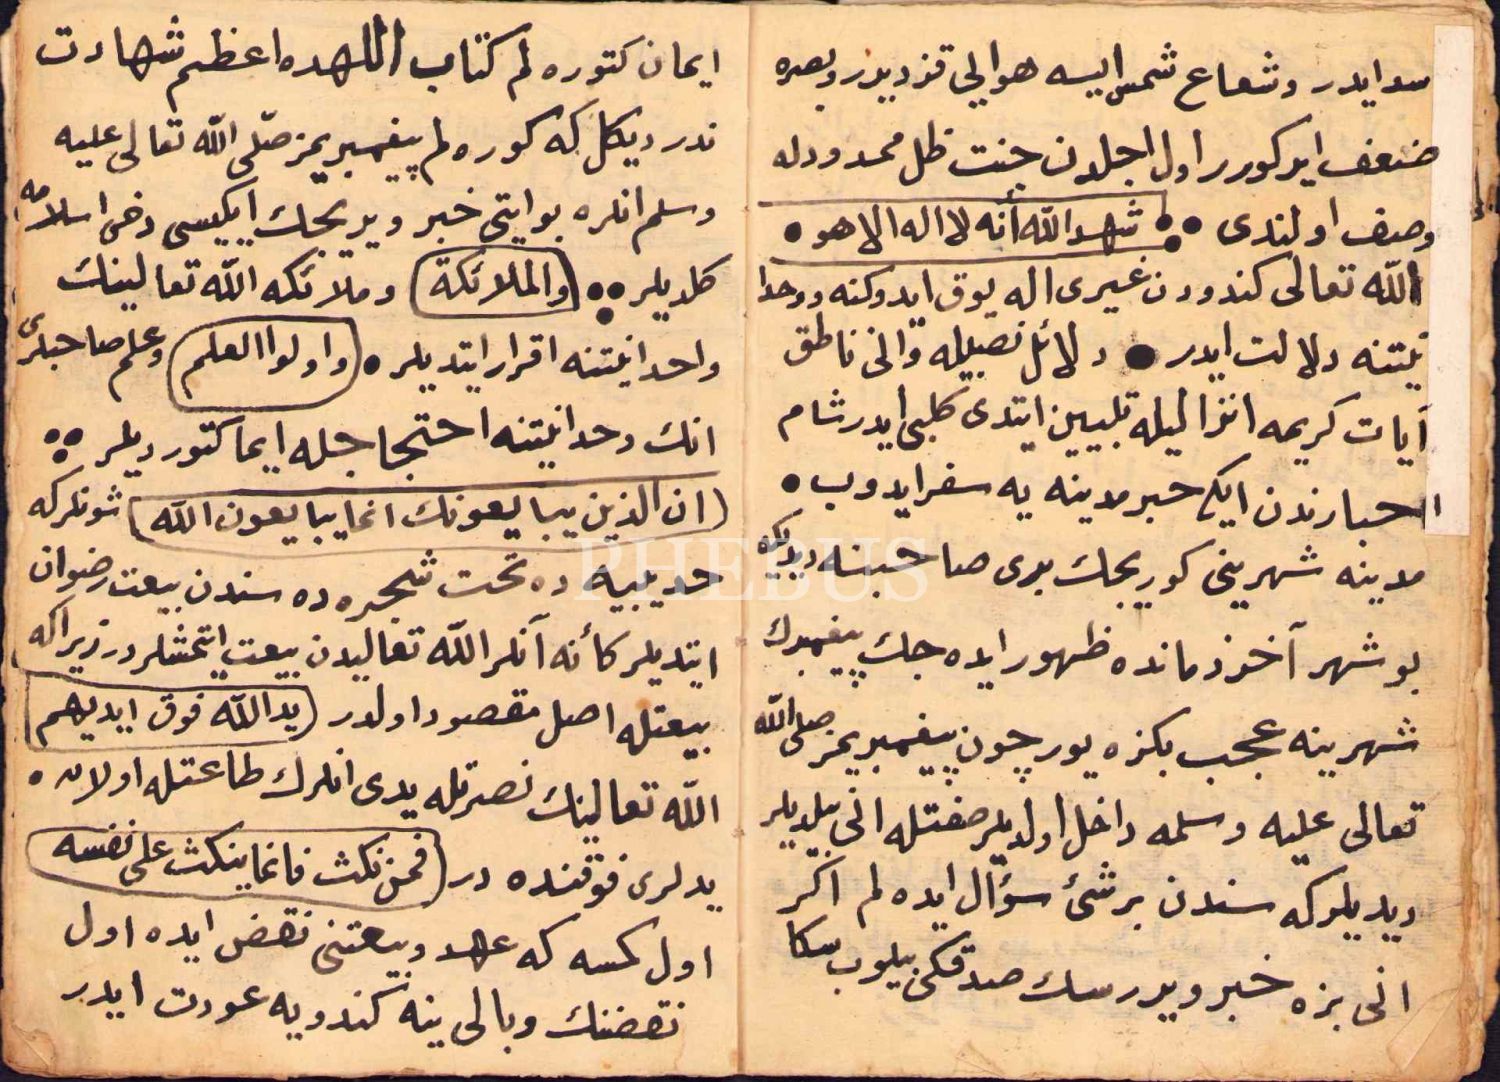 سد ايدر و شعاع شمس ايسه هوالى قزديرر و بصره
ضعف ايركورر اول اجلدن جنت ظل ممدود له
وصف اولندى شهد الله أنه لا اله الا هو
الله تعالى كندودن غيرى اله يوق ايدوكنه و وحدا
نيتنه دلالت ايدر دلائل نصبيله وانى ناطق
آيات كريمه انزاليله تبيين ايتدى كلبى ايدر شام
احبارندن ايكى حبر مدينه يه سفر ايدوب
مدينه شهرينى كوريجك برى صاحبنه ديديكه
بو شهر آخر زمانده ظهور ايده جك پيغمبرك
شهرينه عجب بكزه يور چون پيغمبريمز صلى الله
تعالى عليه وسلمه داخل اولديلر صفتله انى بيلديلر
ديديلر كه سندن بر شئ سؤال ايده لم اكر
انى بزه خبر ويررسك صدقكى بيلوب سكا
ايمان كتوره لم كتاب اللهده اعظم شهادت
ندر ديكل كه كوره لم پيغمبريمز صلى الله تعالى عليه
وسلم انلره بو ايتى خبر ويريجك ايكيسى دخى اسلامه
كلديلر والملائكة و ملائكه الله تعالينك
واحدانيتنه اقرار ايتديلر واولوا العلم و علم صاحبلرى
انك وحدانيتنه احتجاجله ايما كتورديلر
ان الذين يبايعونك انما يبايعون الله شونلر كه
حديبيه ده تحت شجره ده سندن بيعت رضوان
ايتديلر كأنه آنلر الله تعاليدن بيعت ايتمشلردر زيرا كه
بيعتله اصل مقصود اولدر يد الله فوق ايديهم
الله تعالينك نصرتله يدى انلرك طاعتله اولان
يدلرى فوقنده در فمن نكث فانما ينكث على نفسه
اول كمسه كه عهد و بيعتنى نقض ايده اول
نقضنك وبالى ينه كندويه عودت ايدر
PHEBUS